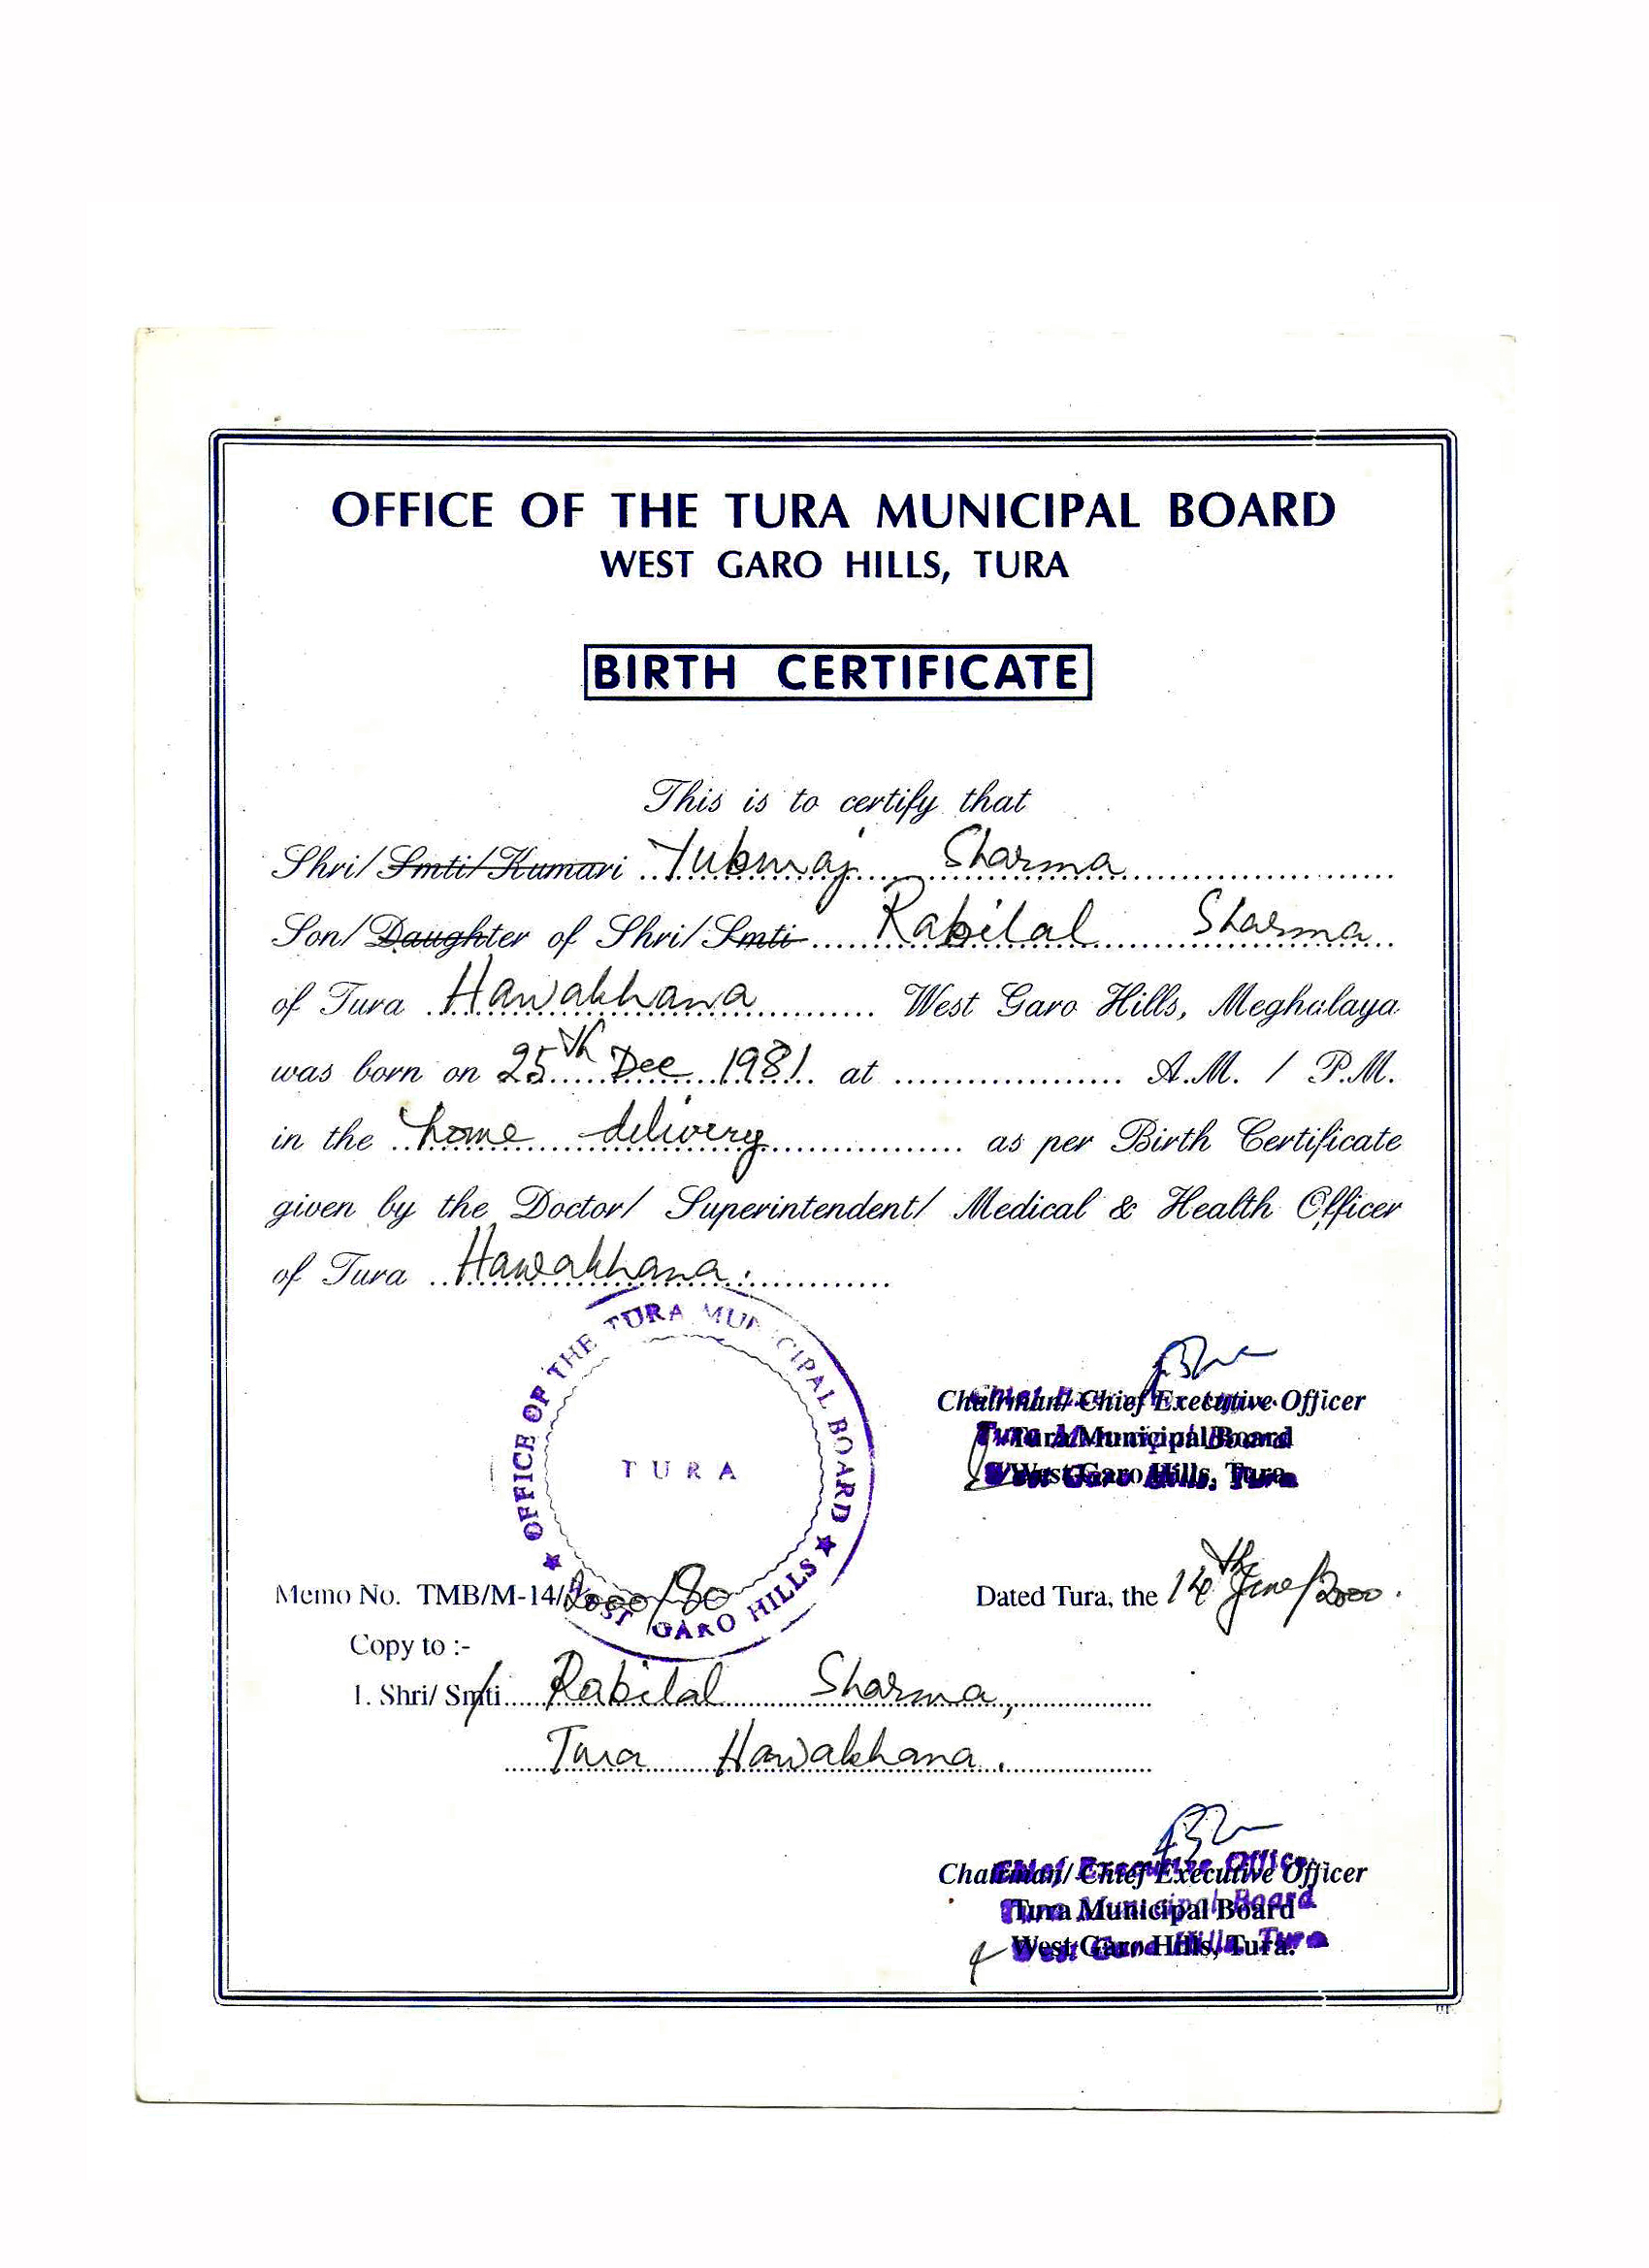 OFFICE OF THE TURA MUNICIPAL BOARD
WEST GARO HILLS, TURA
BIRTH CERTIFICATE
This is to certify that
Shri/ Smti/ Kumari Yubraj Sharma
Son/ Daughter of Shri/ Smti Rabilal Sharma
of Tura Hawakhana West Garo Hills, Meghalaya
was born on 25th Dec 1981 at A.M. / P.M.
in the home delivery as per Birth Certificate
given by the Doctor/ Superintendent/ Medical & Health Officer
of Tura Hawakhana.
OFFICE OF THE TURA MUNICIPAL BOARD ★ WEST GARO HILLS ★
TURA
Chairman/ Chief Executive Officer
Tura Municipal Board
West Garo Hills, Tura.
Memo No. TMB/M-14/2000/80 Dated Tura, the 14th June/2000.
Copy to :-
1. Shri/ Smti Rabilal Sharma,
Tura Hawakhana.
Chief Executive Officer
Tura Municipal Board
West Garo Hills, Tura
Chairman/ Chief Executive Officer
Tura Municipal Board
West Garo Hills, Tura.